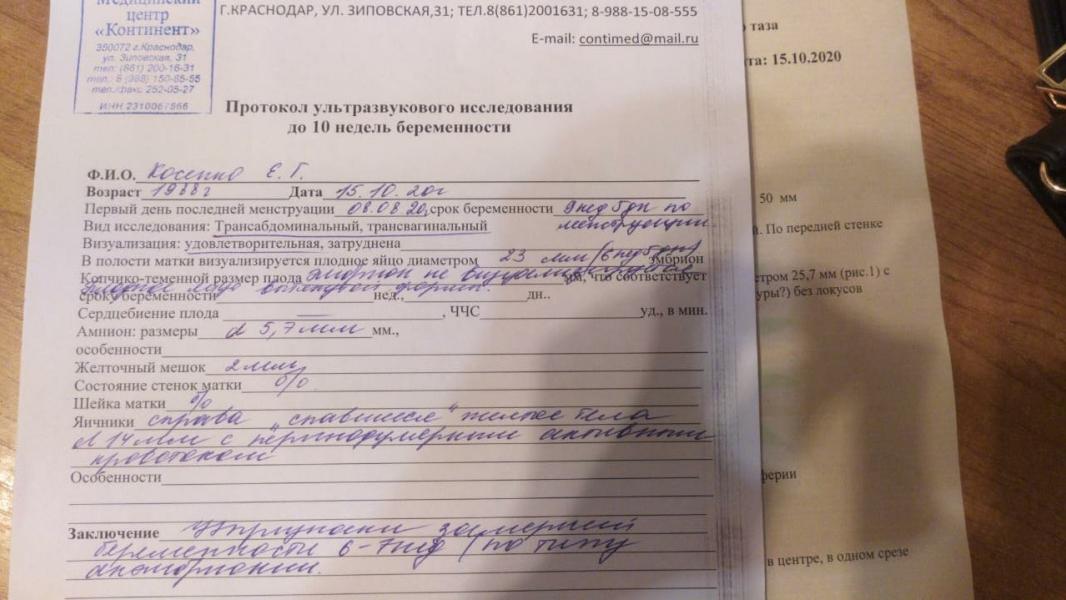 Медицинский
центр
«Континент»
350072 г.Краснодар,
ул. Зиповская, 31
тел. (861) 200-16-31
тел. 8 (988) 150-85-55
тел./факс 252-05-27
ИНН 2310067866
Г.КРАСНОДАР, УЛ. ЗИПОВСКАЯ,31; ТЕЛ.8(861)2001631; 8-988-15-08-555
E-mail: contimed@mail.ru
Протокол ультразвукового исследования
до 10 недель беременности
Ф.И.О. Косенко Е. Г.
Возраст 1988г Дата 15.10.20г
Первый день последней менструации 08.08.20, срок беременности 9нед 6дн по
Вид исследования: Трансабдоминальный, трансвагинальный менструации.
Визуализация: удовлетворительная, затруднена
В полости матки визуализируется плодное яйцо диаметром 23 мм (6нед 6дн) эмбрион
Копчико-теменной размер плода эмбрион не визуализируется мм, что соответствует
срок беременности нед., дн..
Сердцебиение плода — , ЧСС уд., в мин.
Амнион: размеры d 5,7мм мм.,
особенности
Желточный мешок 2мм
Состояние стенок матки б/о
Шейка матки б/о
Яичники справа "спавшееся" желтое тело
d 14мм с перинодулярным активным
кровотоком
Особенности
Заключение замершей
беременности 6-7нед (по типу
анэмбрионии.
таза
та: 15.10.2020
50 мм
й. По передней стенке
етром 25,7 мм (рис.1) с
уры?) без локусов
ферии
в центре, в одном срезе